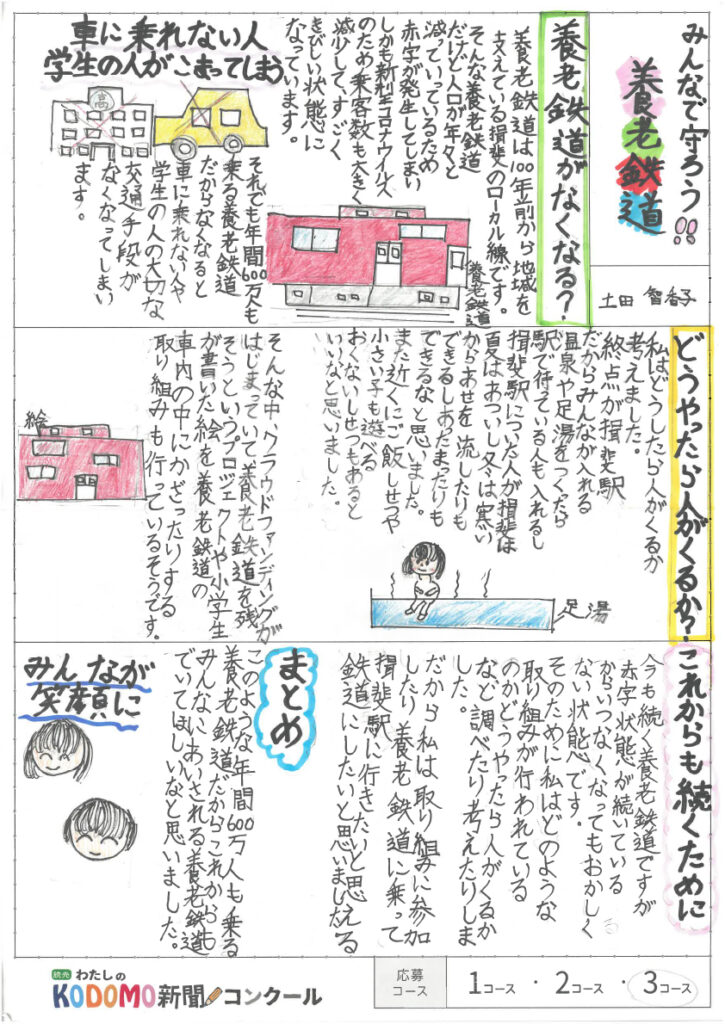 みんなで守ろう!!
養老鉄道
土田 智香子
養老鉄道がなくなる?
養老鉄道は100年前から地域を
支えている揖斐のローカル線です。
そんな養老鉄道
だけど人口が年々と
減っていっているため
赤字が発生してしまい
しかも新型コロナウイルス
のため乗客数も大きく
減少して、すごく
きびしい状態に
なっています。
養老鉄道
車に乗れない人
学生の人がこまってしまう
高
それでも年間600万人も
乗る養老鉄道
だからなくなると
車に乗れない人や
学生の人の大切な
交通手段が
なくなってしまい
ます。
どうやったら人がくるか?
私はどうしたら人がくるか
考えました。
終点が揖斐駅
だからみんなが入れる
温泉や足湯をつくったら
駅で待っている人も入れるし
揖斐駅についた人が揖斐は
夏はあついし冬は寒い
からあせを流したりも
できるしあたたまたりも
できるなと思いました。
また近くにご飯しせつや
小さい子も遊べる
おくないしせつもあると
いいなと思いました。
足湯
そんな中、クラウドファンディングが
はじまっていて養老鉄道を残
そうというプロジェクトや小学生
が書いた絵を養老鉄道の
車内の中にかざったりする
取り組みも行っているそうです。
絵
これからも続くために
今も続く養老鉄道ですが
赤字状態が続いている
からいつなくなってもおかしく
ない状態です。
そのために私はどのような
取り組みが行われている
のかどうやったら人がくるか
など調べたり考えたりしま
した。
だから私は取り組みに参加
したり養老鉄道に乗って
揖斐駅に行きたいと思える
鉄道にしたいと思いました
まとめ
このような年間600万人も乗る
養老鉄道だからこれからも
みんなにあいされる養老鉄道
でいてほしいなと思いました。
みんなが
笑顔に
読売 わたしの
KODOMO新聞コンクール
応募
コース
1コース・2コース・3コース